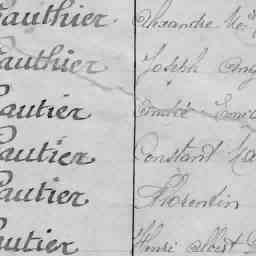 Gauthier Alexandre
Gauthier Joseph
Gautier Emile
Gautier Constant
Gautier Florentin
Gautier Henri Albert